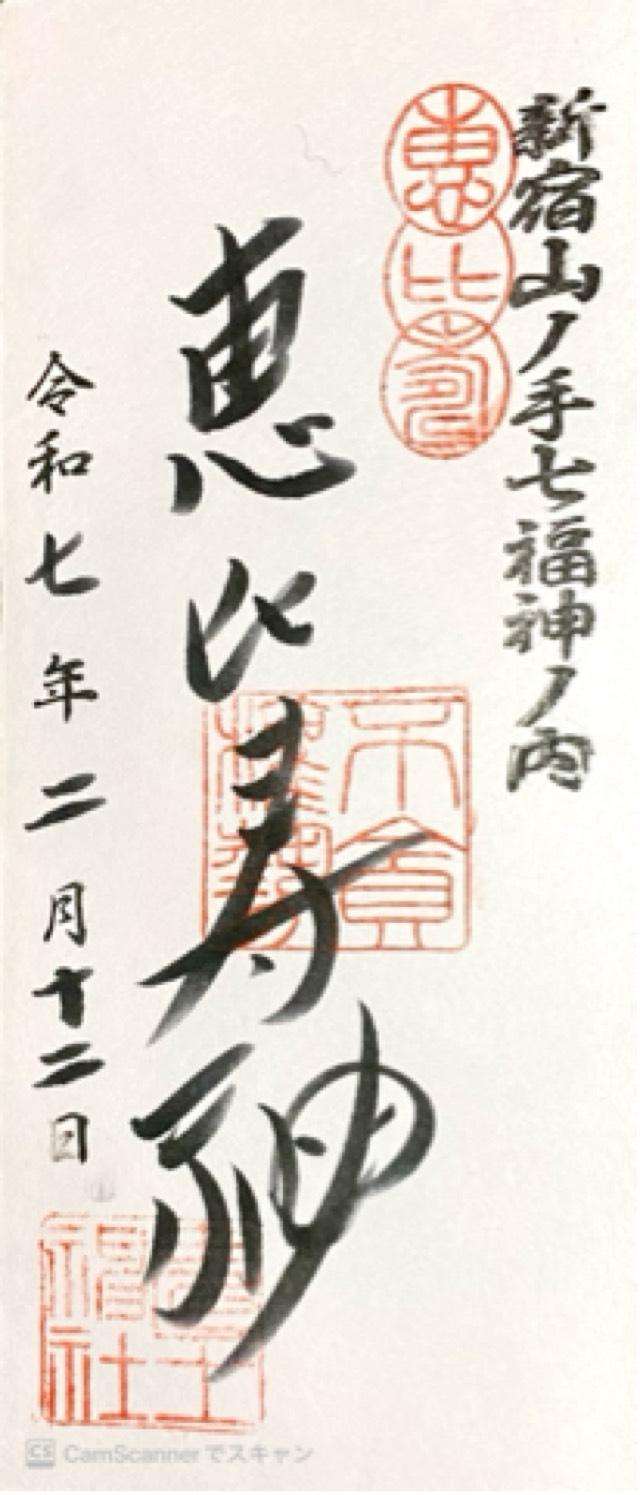 新宿山ノ手七福神ノ内
恵比寿
恵比寿神
令和七年二月十二日
CS CamScannerでスキャン